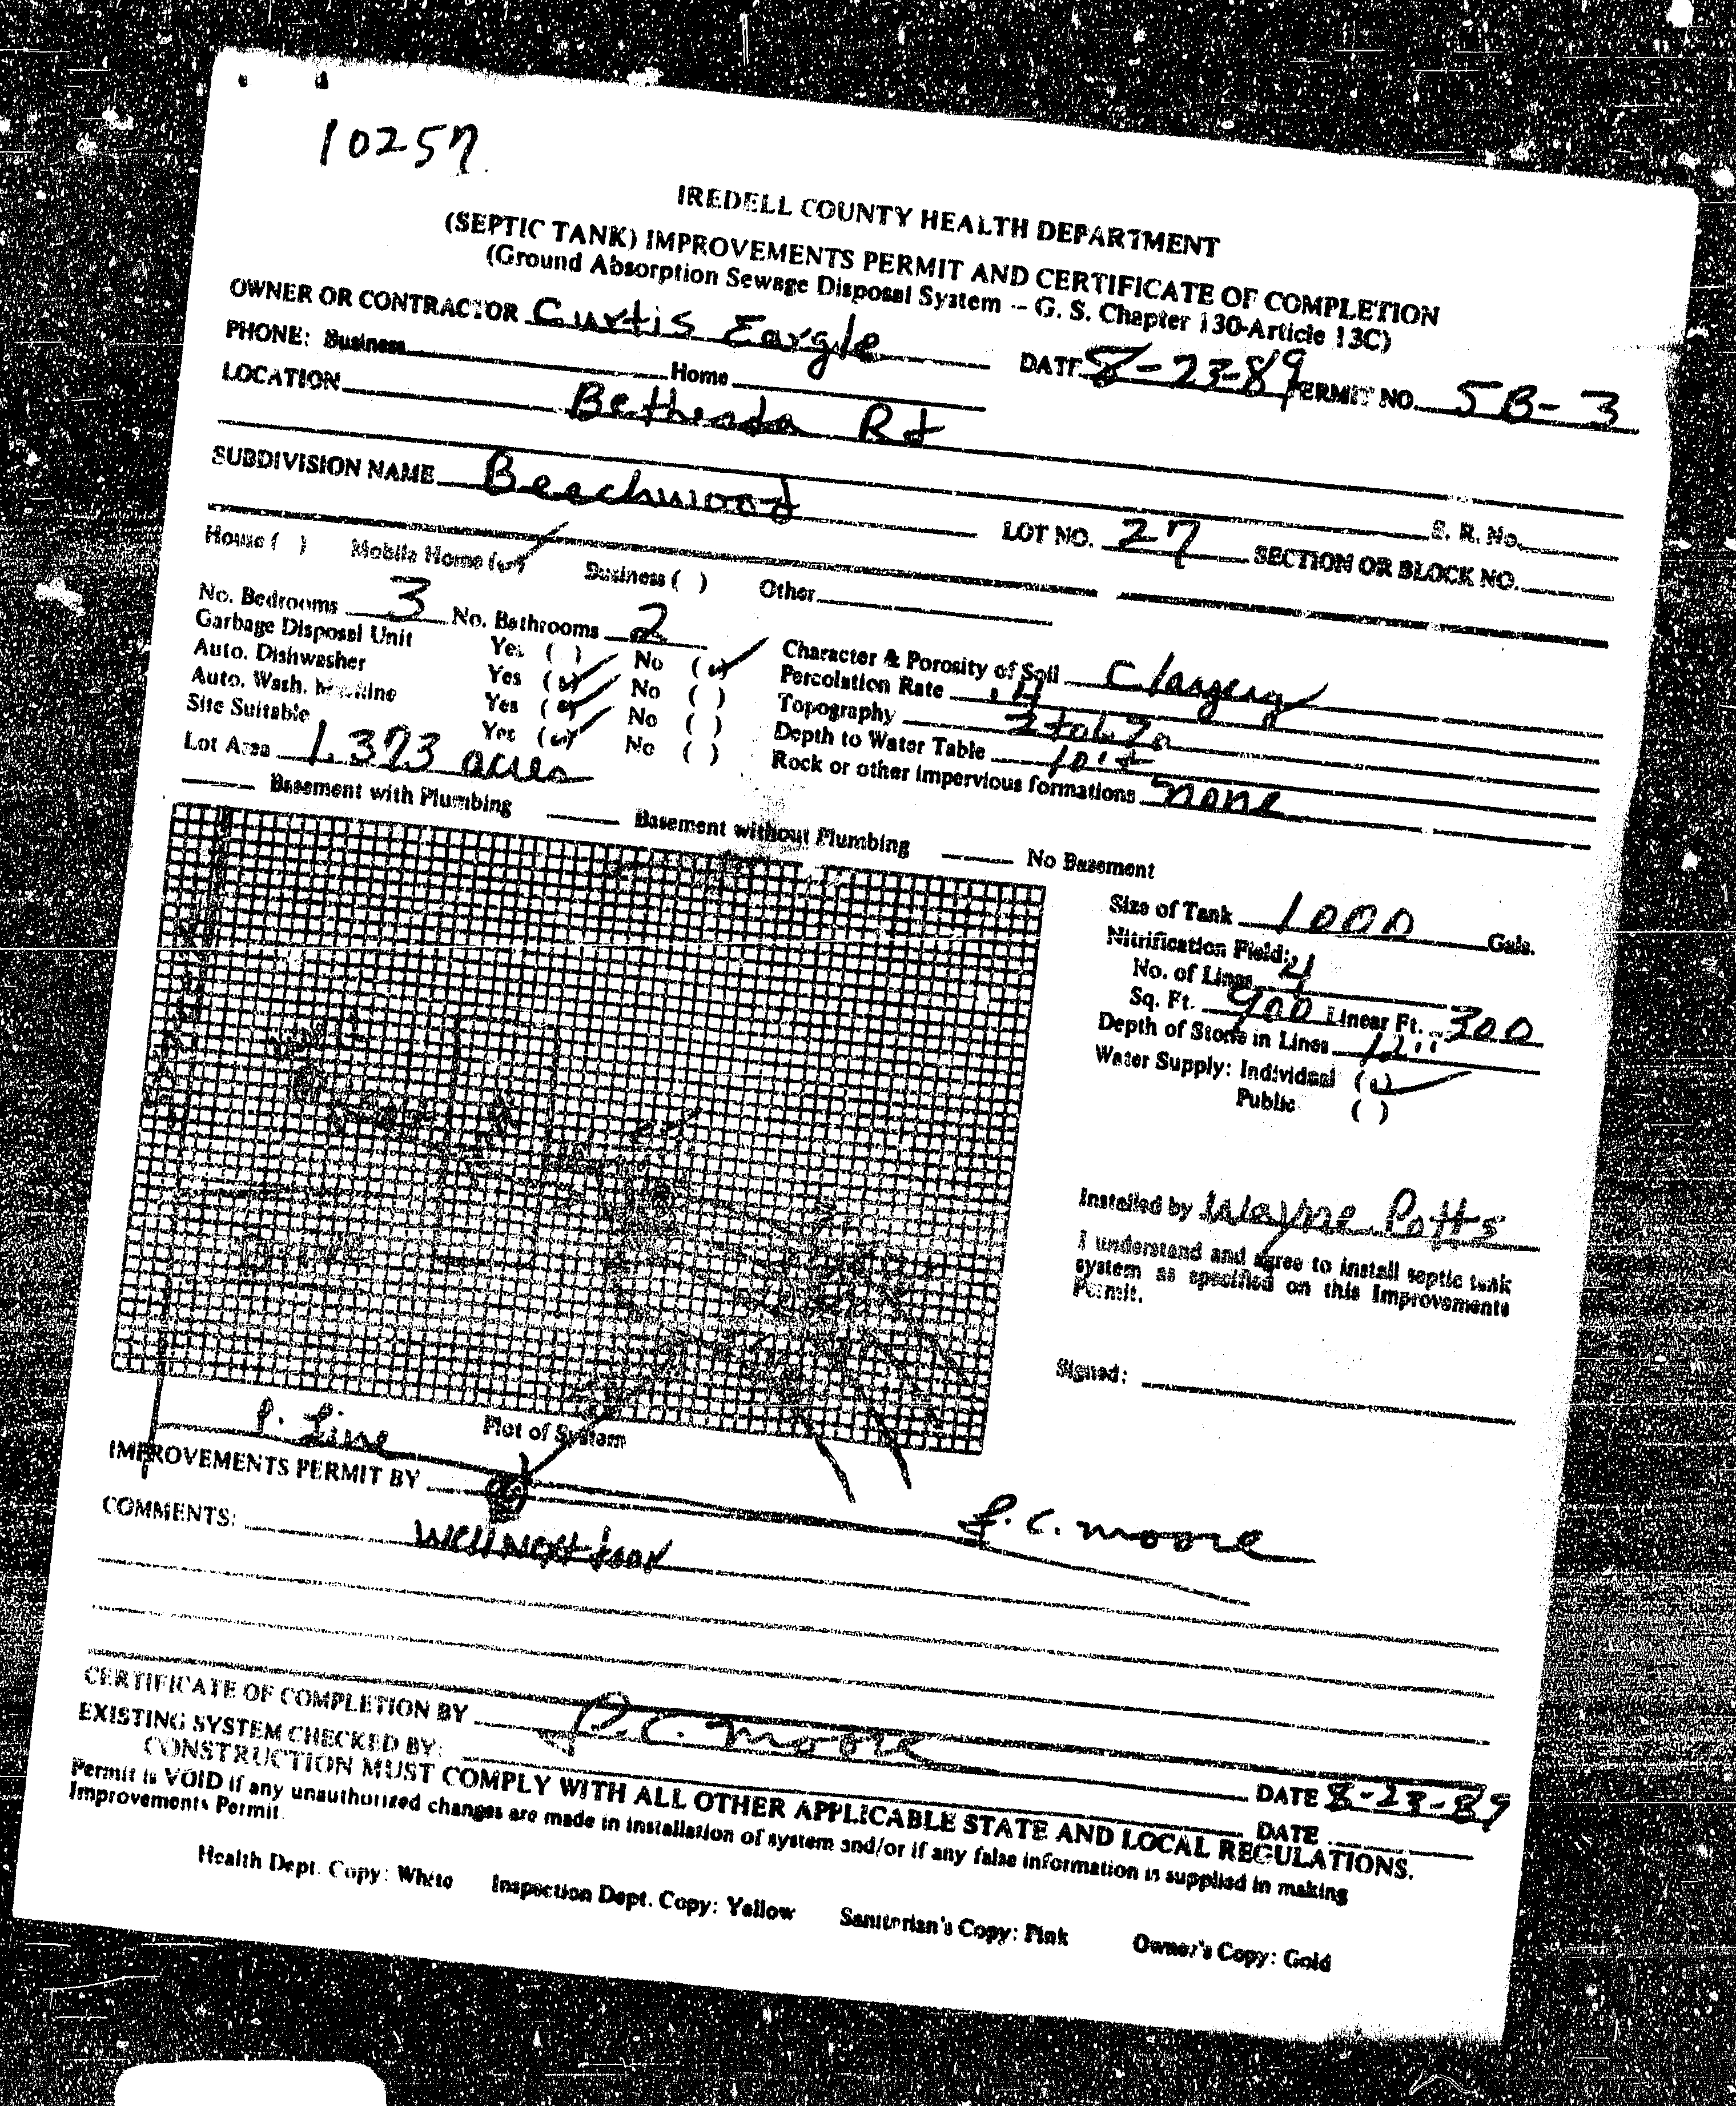 10257
IREDELL COUNTY HEALTH DEPARTMENT
(SEPTIC TANK) IMPROVEMENTS PERMIT AND CERTIFICATE OF COMPLETION
(Ground Absorption Sewage Disposal System -- G. S. Chapter 130-Article 13C)
OWNER OR CONTRACTOR Curtis Eargle DATE 8-23-89 PERMIT NO. 5B-3
PHONE: Business Home
LOCATION Bethesda Rd
S. R. No.
SUBDIVISION NAME Beechwood LOT NO. 27 SECTION OR BLOCK NO.
House ( ) Mobile Home (✓) Business ( ) Other
No. Bedrooms 3 No. Bathrooms 2
Garbage Disposal Unit Yes ( ) No (✓)
Auto. Dishwasher Yes (✓) No ( )
Auto. Wash. Machine Yes (✓) No ( )
Site Suitable Yes (✓) No ( )
Lot Area 1.373 acres
Character & Porosity of Soil
Percolation Rate .4
Topography
Depth to Water Table
Rock or other impervious formations none
Basement with Plumbing Basement without Plumbing No Basement
Size of Tank 1000 Gals.
Nitrification Field:
No. of Lines 4
Sq. Ft. 900 Linear Ft. 300
Depth of Stone in Lines 12"
Water Supply: Individual (✓)
Public ( )
Installed by Wayne Potts
I understand and agree to install septic tank
system as specified on this Improvements
Permit.
Signed:
P. Line
Plot of System
IMPROVEMENTS PERMIT BY J. C. Moore
COMMENTS:
CERTIFICATE OF COMPLETION BY J. C. Moore DATE 8-23-89
EXISTING SYSTEM CHECKED BY: DATE
CONSTRUCTION MUST COMPLY WITH ALL OTHER APPLICABLE STATE AND LOCAL REGULATIONS.
Permit is VOID if any unauthorized changes are made in installation of system and/or if any false information is supplied in making
Improvements Permit.
Health Dept. Copy: White Inspection Dept. Copy: Yellow Sanitarian's Copy: Pink Owner's Copy: Gold